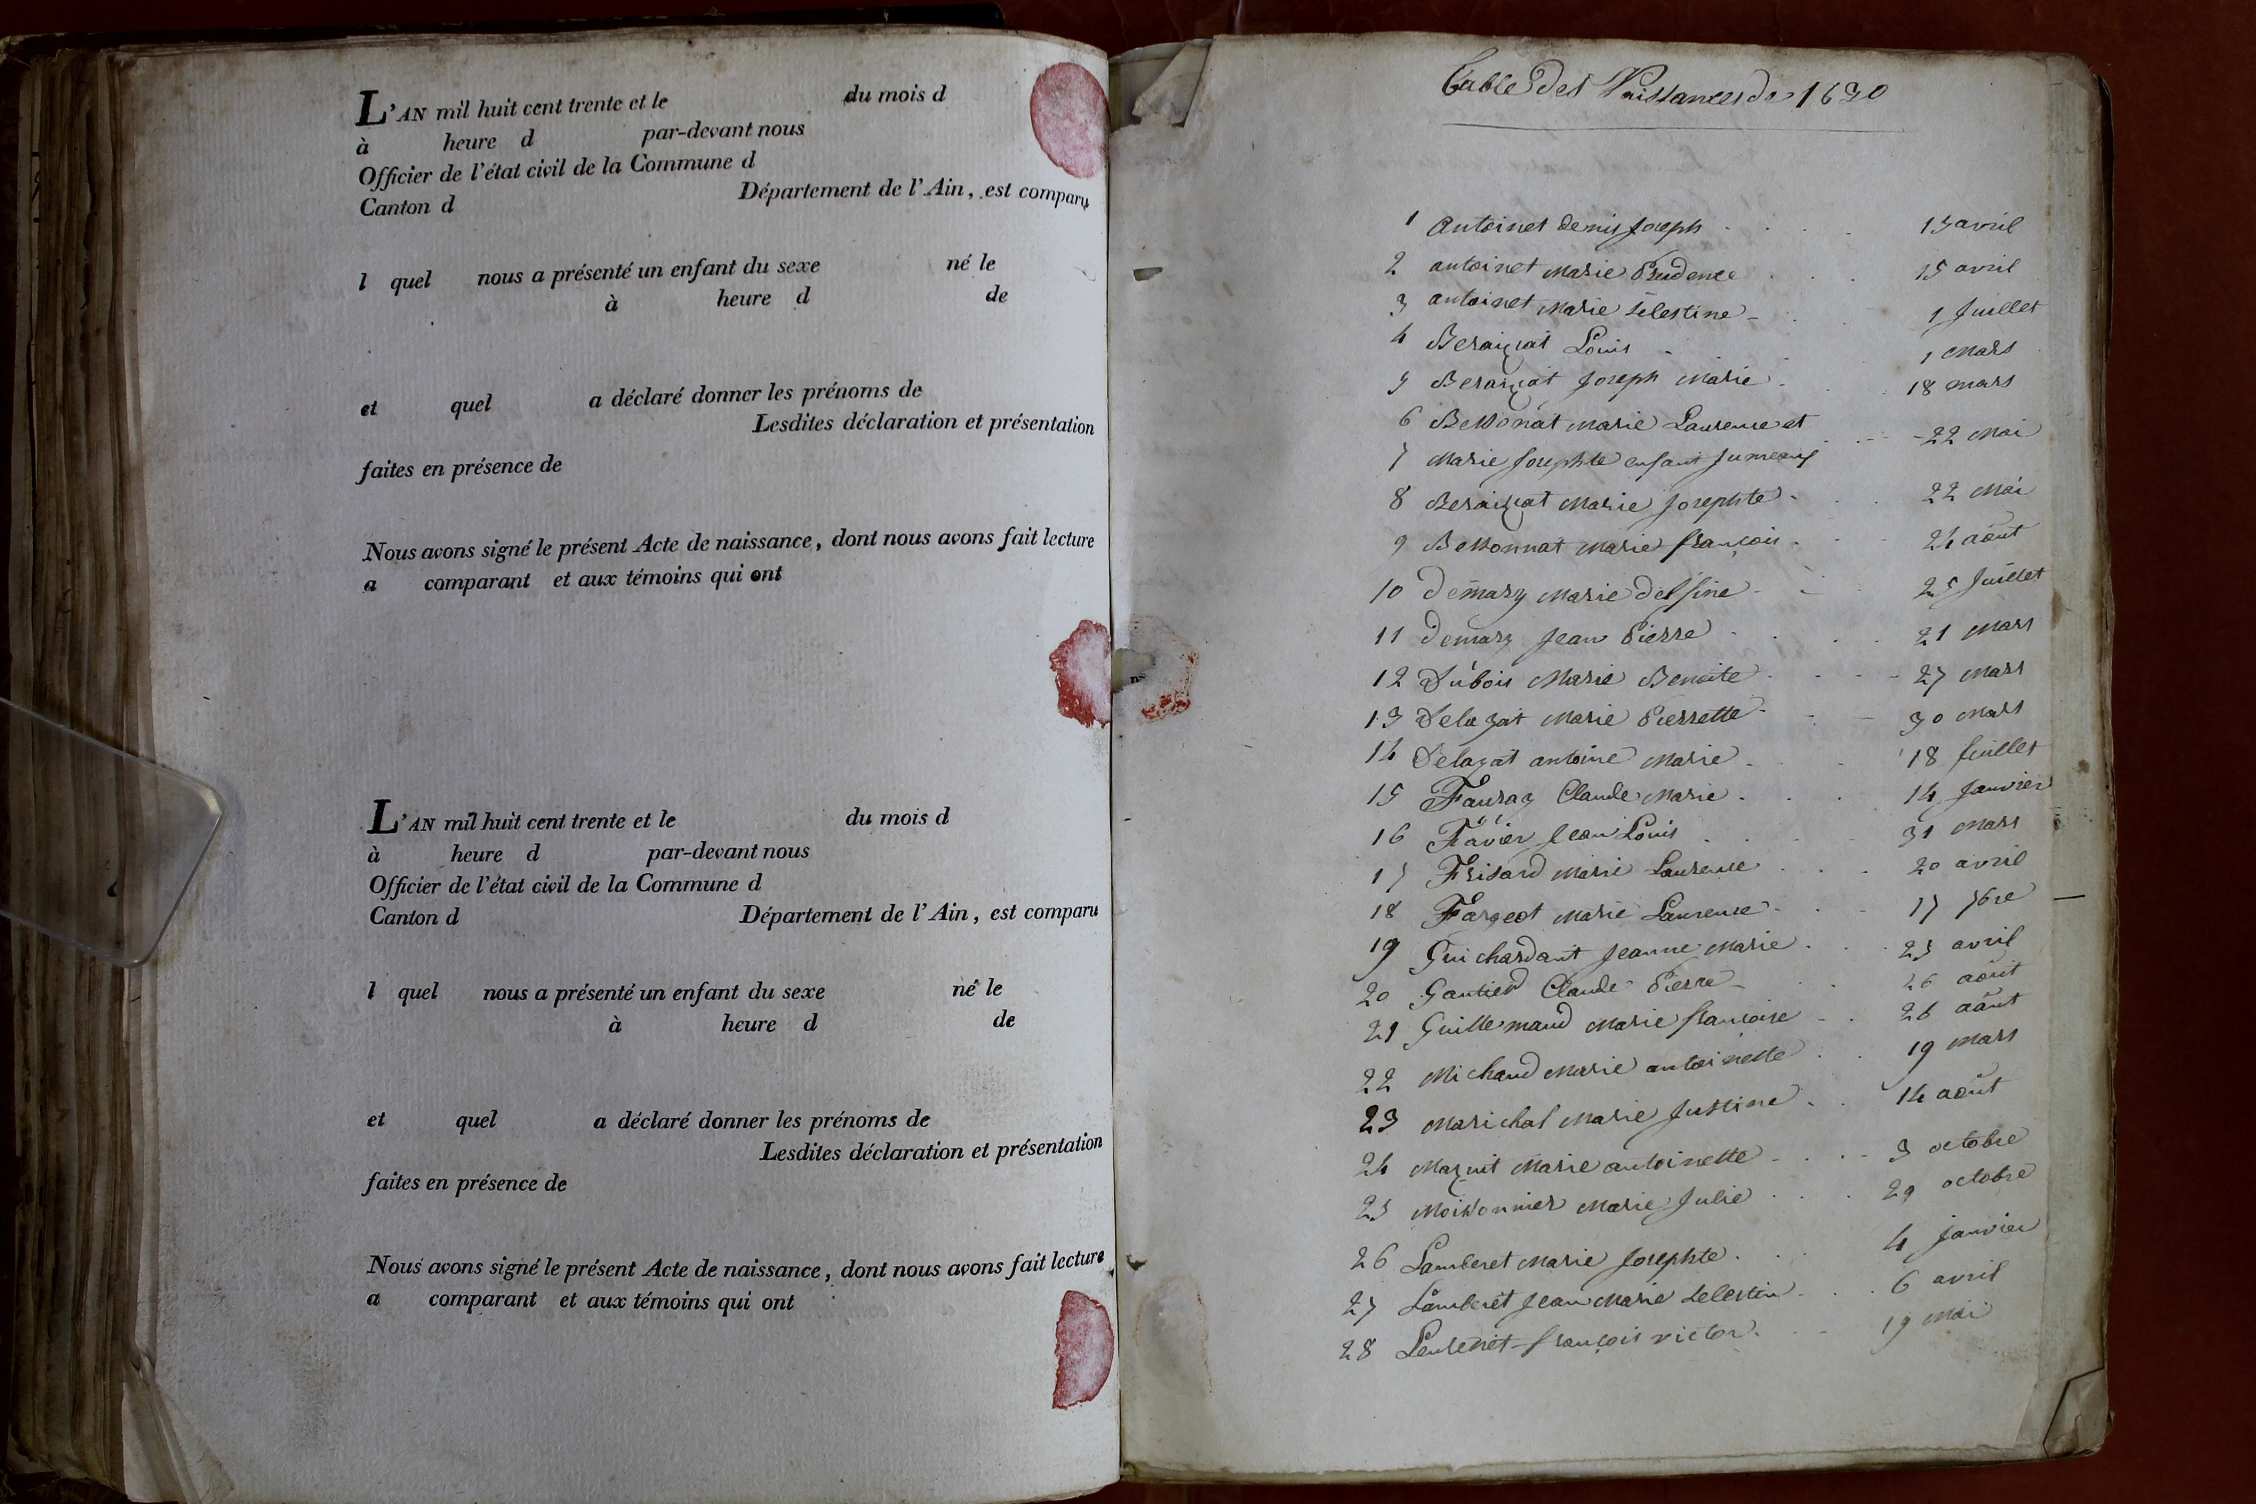 L'AN mil huit cent trente et le du mois d
à heure d par-devant nous
Officier de l'état civil de la Commune d
Canton d Département de l'Ain, est comparu
l quel nous a présenté un enfant du sexe né le
à heure d de
et quel a déclaré donner les prénoms de
Lesdites déclaration et présentation
faites en présence de
Nous avons signé le présent Acte de naissance, dont nous avons fait lecture
a comparant et aux témoins qui ont
L'AN mil huit cent trente et le du mois d
à heure d par-devant nous
Officier de l'état civil de la Commune d
Canton d Département de l'Ain, est comparu
l quel nous a présenté un enfant du sexe né le
à heure d de
et quel a déclaré donner les prénoms de
Lesdites déclaration et présentation
faites en présence de
Nous avons signé le présent Acte de naissance, dont nous avons fait lecture
a comparant et aux témoins qui ont
Table Des Naissances de 1830
1 Antoinet denis Joseph 15 avril
2 antoinet Marie Prudence 15 avril
3 antoinet Marie Celestine 1 Juillet
4 Louis 1 Mars
5 Joseph Marie 18 mars
6 Bessonat Marie Laurence et 22 Mai
7 Marie Josephte enfant Jumeaux
8 Marie Josephte 22 Mai
9 Bessonnat Marie françois 24 août
10 Demary Marie Delfine 25 Juillet
11 Demary Jean Pierre 21 Mars
12 Dubois Marie Benoite 27 Mars
13 Delazat Marie Pierrette 30 Mars
14 Delazat antoine Marie 18 Juillet
15 Fauray Claude Marie 14 Janvier
16 Favier Jean Louis 31 Mars
17 Frisard Marie Laurence 20 avril
18 Fargeot Marie Laurence 17 7bre
19 Guichardant Jeanne Marie 25 avril
20 Gautier Claude Pierre 26 août
21 Guillemaud Marie françoise 26 août
22 Michaud Marie antoinette 19 Mars
23 Marichal Marie Justine 14 août
24 Marie antoinette 3 octobre
25 Moissonnier Marie Julie 29 octobre
26 Lamberet Marie Josephte 4 Janvier
27 Lamberet Jean Marie Celestin 6 avril
28 françois victor 19 Mai